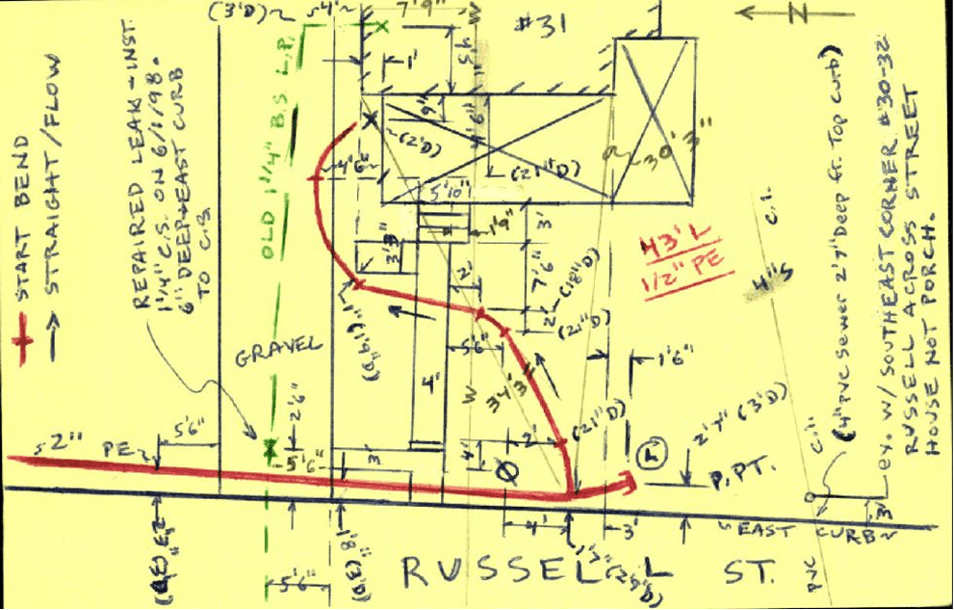 (3'D)~
~4'
7'9"
W
#31
N
START BEND
STRAIGHT/FLOW
REPAIRED LEAK-INST.
1 1/4" C.S. ON 6/1/98.
6" DEEP+EAST CURB
TO C.B.
OLD 1 1/4" B.S. L.P.
1'
4'6"
(2'D)
~4'6"~
(21"D)
30'3"
5'10"
1'9"
3'
3'3"
2'
7'6"
(18"D)
2'
(21"D)
43'L
1/2" PE
4"S
C.I.
(4" PVC Sewer 2'7" Deep fr. Top curb)
ex. W/SOUTHEAST CORNER #30-32
RUSSELL ACROSS STREET
HOUSE NOT PORCH.
GRAVEL
5'6"
34'3"
1'6"
4'
W
2'6"
2'
(21"D)
2'7" (3'D)
P.PT.
C.I.
2"
PE
5'6"
5'6"
3'
4'
4'
3'
EAST CURB
3'
PVC
5'6"
RUSSELL ST.